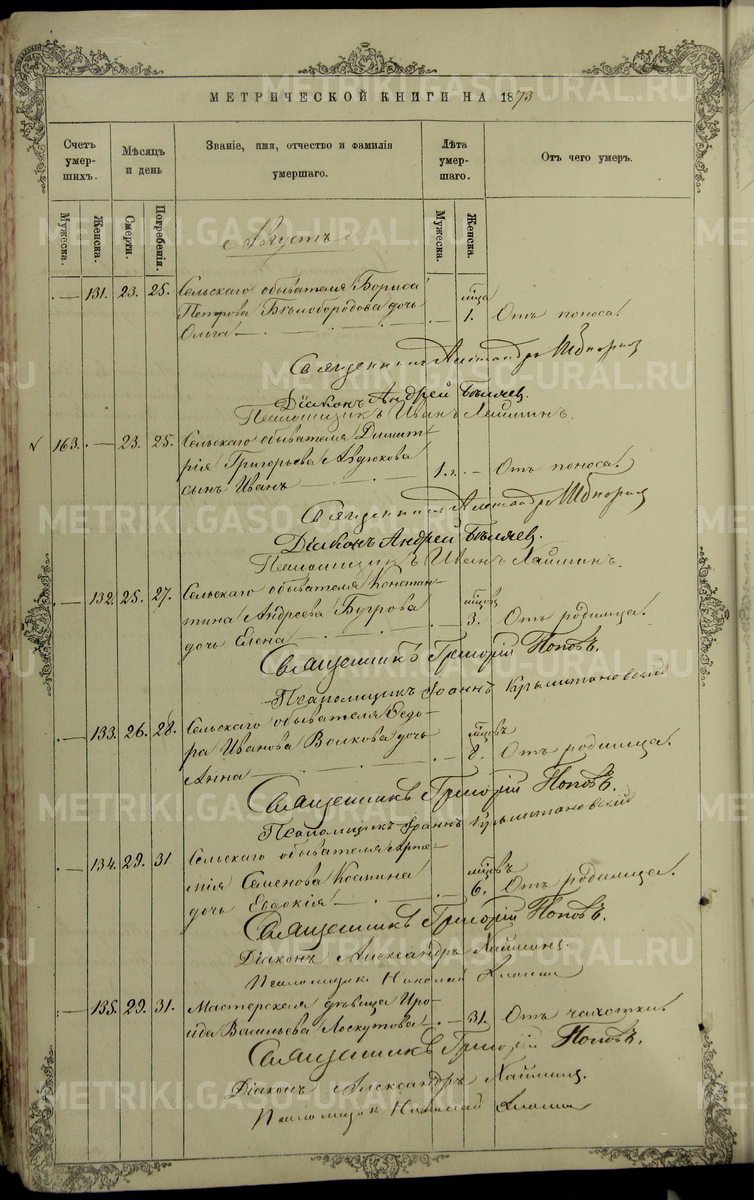 МЕТРИЧЕСКОЙ КНИГИ НА 1873
Счетъ умер-шихъ.
Мѣсяцъ и день
Званіе, имя, отчество и фамилія умершаго.
Лѣта умер-шаго.
Отъ чего умеръ.
Мужеска. Женска. Смерти. Погребенія. Мужеска. Женска.
Августъ
— 131. 23. 25. Сельскаго обывателя Бориса
Петрова Бѣлобородова дочь
Ольга — 1. Отъ поноса.
Священникъ Александръ
Діаконъ Андрей Бѣляев.
Псаломщикъ Иванъ Лаишинъ.
163. — 23. 25. Сельскаго обывателя Димит-
рія Григорьева Авдюкова
сынъ Иванъ 1 г. — Отъ поноса.
Священникъ Александръ
Діаконъ Андрей Бѣляев.
Псаломщикъ Иванъ Лаишинъ.
— 132. 25. 27. Сельскаго обывателя Констан-
тина Андреева Бугрова
дочь Елена — мцовъ 3. Отъ родимца.
Священникъ Григорій Поповъ.
Псаломщикъ Іоаннъ Крыжановскій
— 133. 26. 28. Сельскаго обывателя Ѳедо-
ра Иванова Волкова дочь
Анна — мцовъ 8. Отъ родимца.
Священникъ Григорій Поповъ.
Псаломщикъ Іоаннъ Крыжановскій
— 134. 29. 31. Сельскаго обывателя
Семенова
дочь Евдокія — мцовъ 6. Отъ родимца.
Священникъ Григорій Поповъ.
Діаконъ Александръ Лаишинъ.
Псаломщикъ Николай
— 135. 29. 31. Мастерская дѣвица Иро-
ида Васильева Лоскутова — 31. Отъ чахотки.
Священникъ Григорій Поповъ.
Діаконъ Александръ Лаишинъ.
Псаломщикъ Николай
METRIKI.GASO-URAL.RU